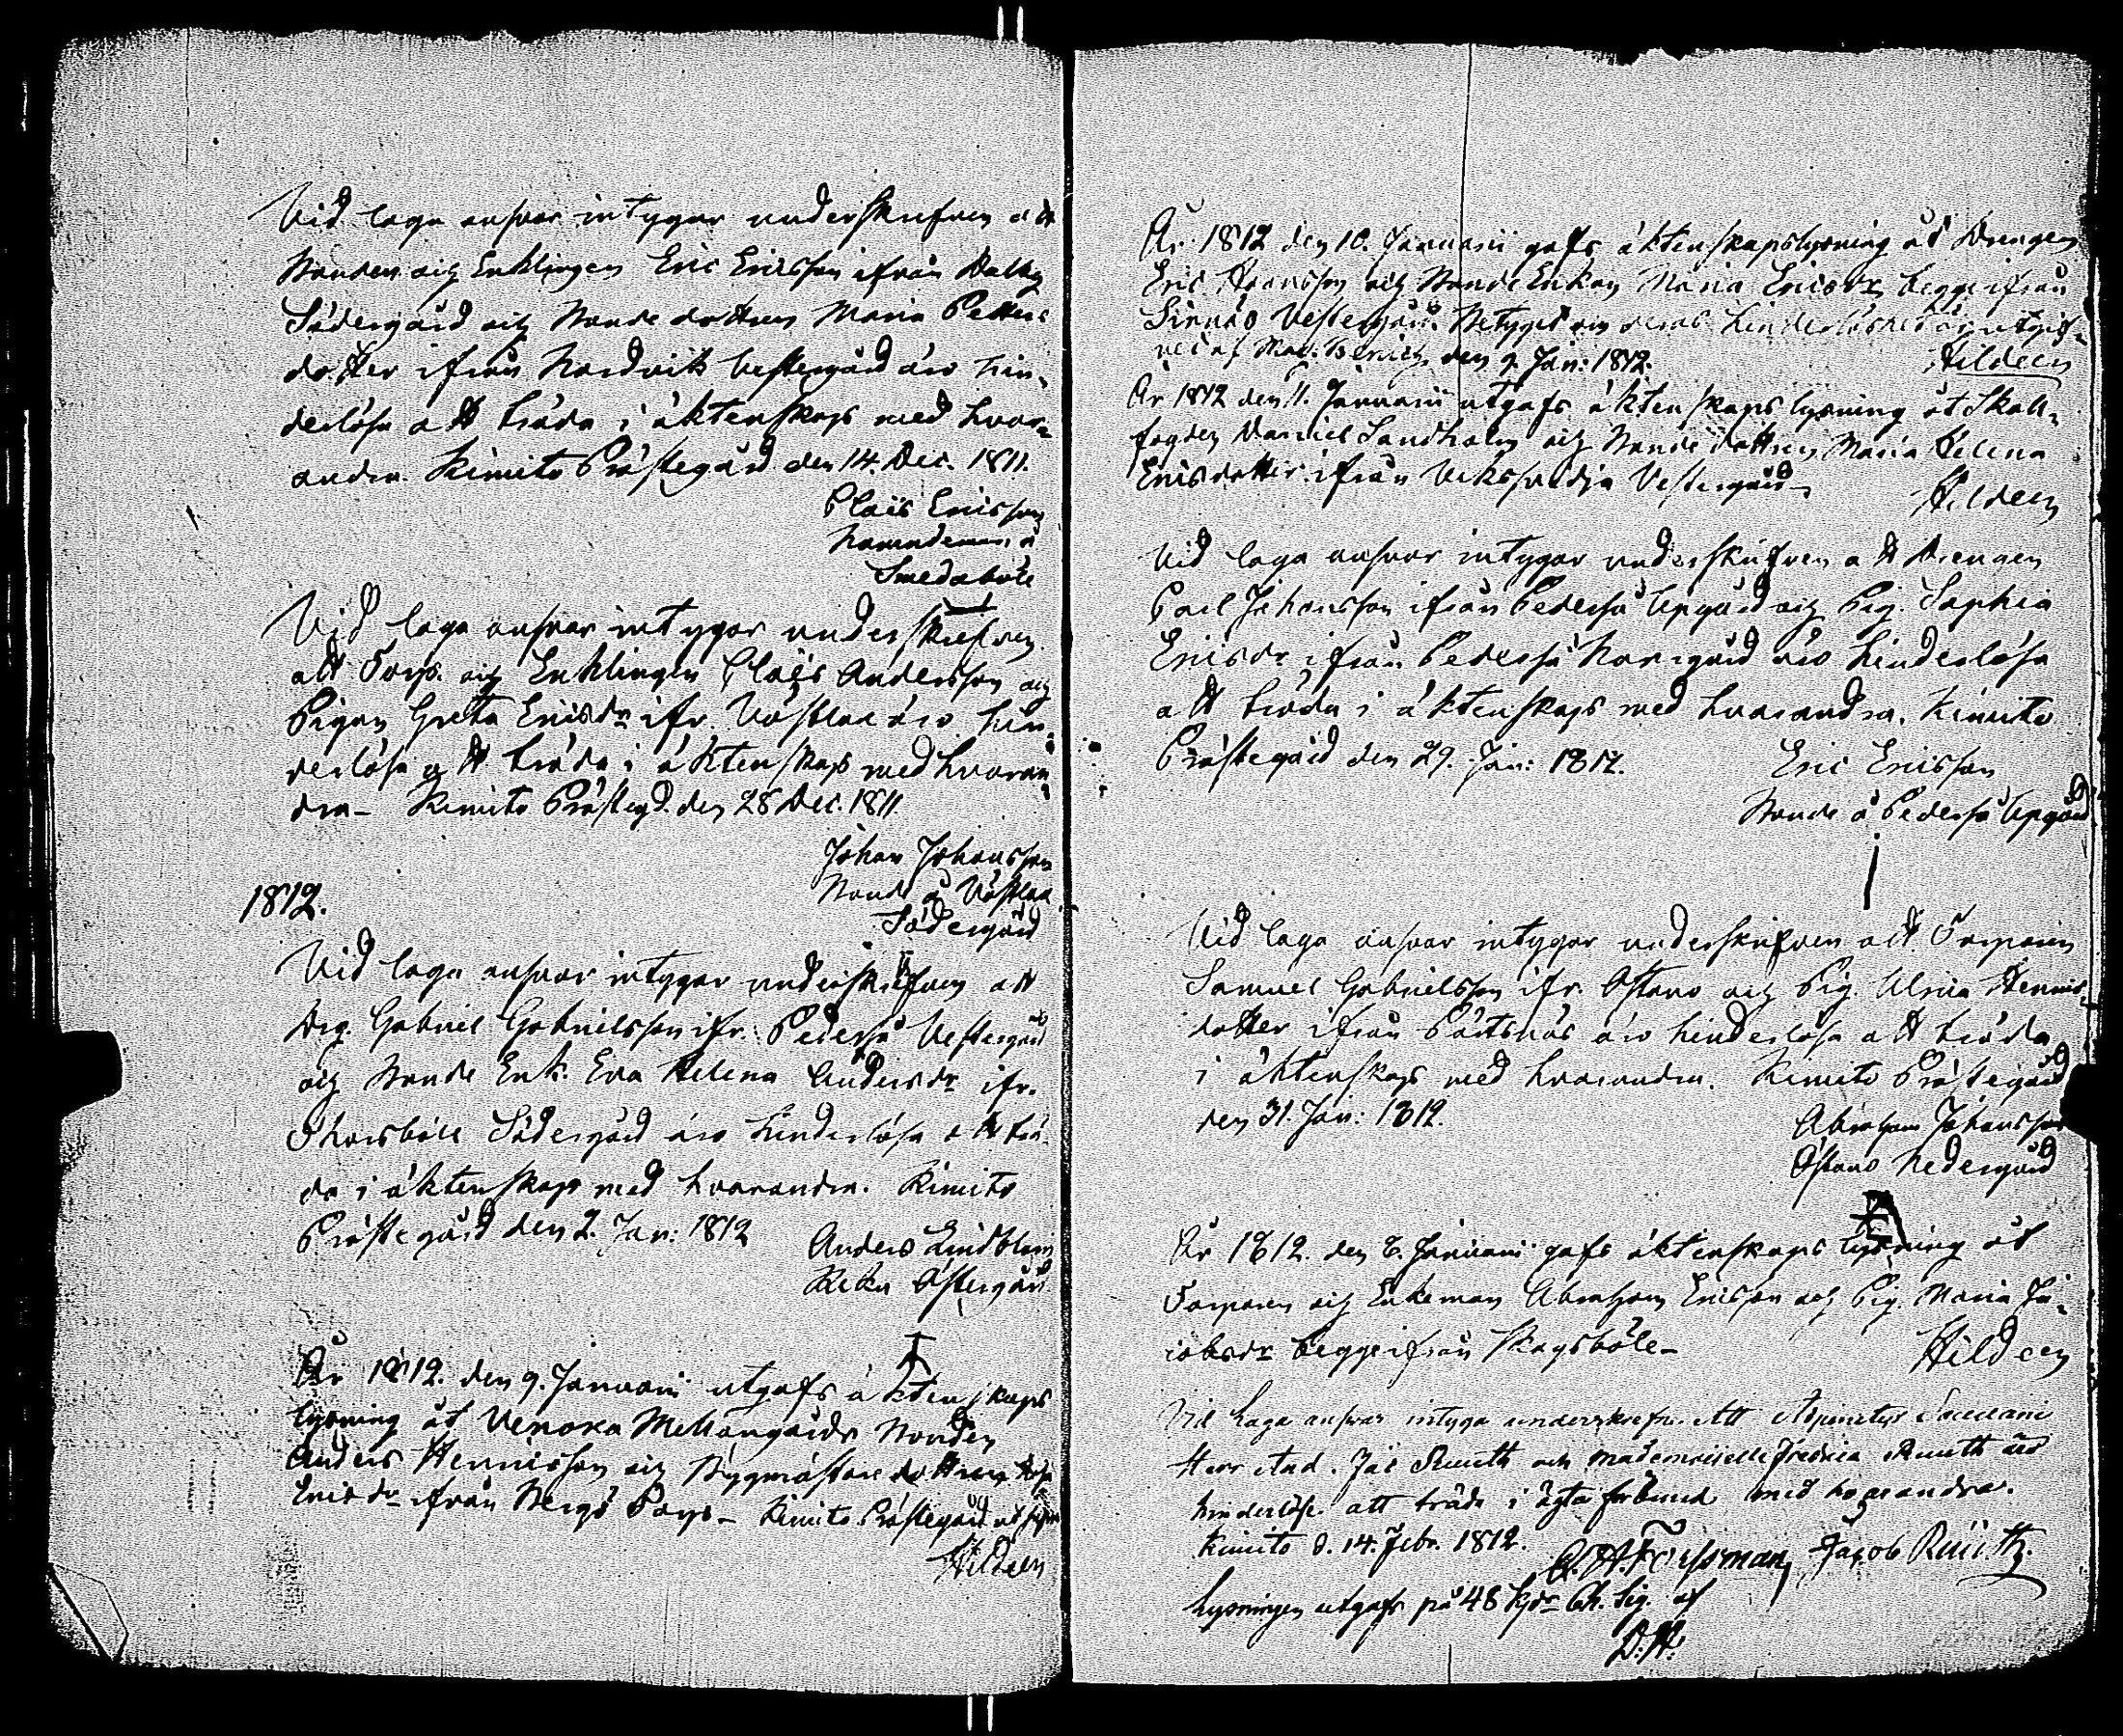 Vid laga ansvar intygar underskrefven att
Bonden och Enklingen Eric Ericsson ifrån Dalby
Södergård och Bonde dottren Maria Petters
dotter ifrån Nordvik Vestergård äro hin-
derlösa att träda i äktenskap med hvar-
andra. Kimito Prästegård den 14. Dec. 1811.
Claës Ericsson
Nämndeman i
Smedaböle
Vid laga ansvar intygar underskrefven
att Torp. och Enklingen Claës Andersson och
Pigan Greta Ericsdr ifr. Västlax äro hin-
derlösa att träda i äktenskap med hvaran
dra - Kimito Prästegd. den 28 Dec. 1811.
Johan Johansson
Bonde å Västlax
Södergård
1812.
Vid laga ansvar intygar underskrefven att
Drg. Gabriel Gabrielsson ifr. Pederså Vestergård
och Bonde Enk. Eva Helena Andersdr ifr.
Södergård äro hinderlösa att trä-
da i äktenskap med hvarandra. Kimito
Prästegård den 2. Jan: 1812
Anders Lindblom
Reku Östergård
År 1812. den 9. Januarii utgafs äktenskaps
lysning åt Venoxa Mellangårds Bonden
Anders Henricsson och Byggmästare dottren
Ericsdr ifrån Torp - Kimito Prästegård ut supra
Hildeen
År 1812 den 10. Januarii gafs äktenskapslysning åt Drengen
Eric Hansson och Bonde Enkan Maria Ericsdr begge ifrån
Vestergård. Betyget om deras hinderlöshet är utgif-
vet af den 9. Jan: 1812.
Hildeen
År 1812 den 11. Januarii utgafs äktenskaps lysning åt Skall-
fogden Daniel Sandholm och Bonde dottren Maria Helena
Ericsdotter ifrån Vestergård
Hildeen
Vid laga ansvar intygar underskrifven att Drengen
Carl Johansson ifrån Pederså Upgård och Pig. Sophia
Ericsdr ifrån Pederså Norrgård äro hinderlösa
att träda i äktenskap med hvarandra. Kimito
Prästegård den 29. Jan: 1812.
Eric Ericsson
Bonde å Pederså Upgård
Vid laga ansvar intygar underskrifven att Torparen
Samuel Gabrielsson ifr. Östanå och Pig. Ulrica Henrics-
dotter ifrån Pärtsnäs äro hinderlösa att träda
i äktenskap med hvarandra. Kimito Prästegård
den 31. Jan: 1812.
Abraham Johansson
Östanå Nedergård
År 1812. den 8. Januarii gafs äktenskaps lysning åt
Torparen och Enkeman Abraham Ericsson och Pig. Maria Ja-
cobsdr begge ifrån Skogsböle -
Hildeen
Vid Laga answar intyga underskrefne Att
Herr And. Jac Ruuth och mademoiselle Fredrica Ruuth äro
hinderlöse att träda i ägta förbund med hvarandra.
Kimito d. 14. Febr. 1812.
Jacob Ruuth.
Lysningen utgafs på 48 Sig. af
D. H.